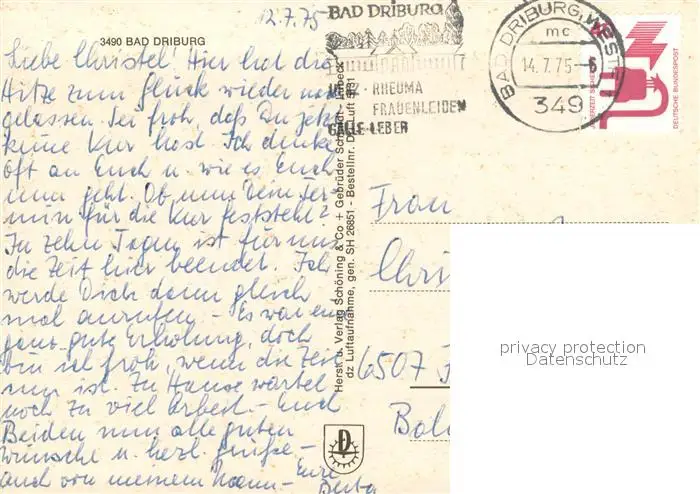 12.7.75
3490 BAD DRIBURG
Liebe Christel! Hier hat die
Hitze zum Glück wieder nach
gelassen. Sei froh, daß Du jetzt
keine Kur hast. Ich denke
oft an Euch u. wie es Euch
nun geht. Ob nun Dein Ter-
min für die Kur feststeht?
In zehn Tagen ist für uns
die Zeit hier beendet. Ich
werde Dich dann gleich
mal anrufen – Es war eine
ganz gute Erholung, doch
bin ich froh, wenn die Zeit
um ist. Zu Hause wartet
noch zu viel Arbeit – Euch
Beiden nun alle guten
Wünsche u. herzl. Grüße –
auch von meinem Mann – Eure
Berta
BAD DRIBURG
HERZ - RHEUMA
FRAUENLEIDEN
GALLE-LEBER
BAD DRIBURG, WESTF
mc
14.7.75-6
349
JEDERZEIT SICHERHEIT
DEUTSCHE BUNDESPOST
Herst. u. Verlag Schöning & Co + Gebrüder Schmidt - Lübeck
dz Luftaufnahme, gen. SH 26851 - Bestellnr. Dri. Luft
Frau
6507
privacy protection
Datenschutz